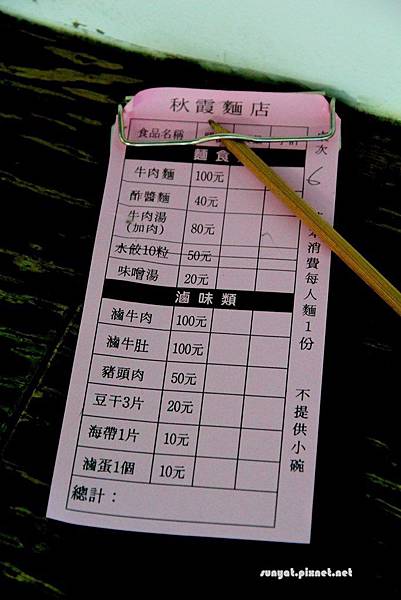 秋霞麵店
食品名稱
麵食
牛肉麵 100元
酢醬麵 40元
牛肉湯(加肉) 80元
水餃10粒 50元
味噌湯 20元
滷味類
滷牛肉 100元
滷牛肚 100元
豬頭肉 50元
豆干3片 20元
海帶1片 10元
滷蛋1個 10元
總計：
次
6
消費每人麵1份
不提供小碗
sunyat.pixnet.net